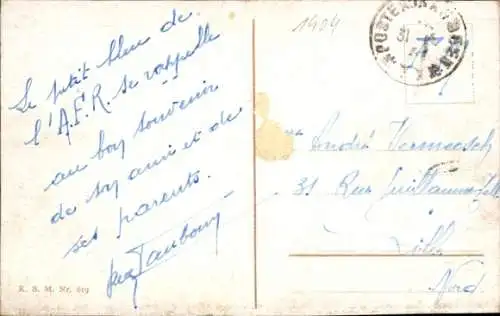 Le petit bleu de
l'A.F.R. se rappelle
au bon souvenir
de son ami et de
ses parents.
K. S. M. Nr. 619
1904
31
André Vermeesch
31 Rue Guillaume
Lille
Nord.